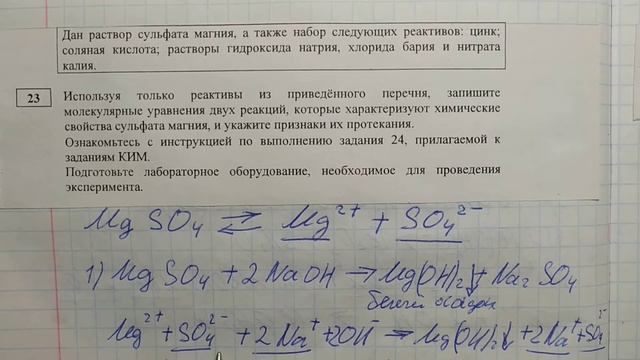 Дан раствор сульфата магния, а также набор следующих реактивов: цинк;
соляная кислота; растворы гидроксида натрия, хлорида бария и нитрата
калия.
23
Используя только реактивы из приведённого перечня, запишите
молекулярные уравнения двух реакций, которые характеризуют химические
свойства сульфата магния, и укажите признаки их протекания.
Ознакомьтесь с инструкцией по выполнению задания 24, прилагаемой к
заданиям КИМ.
Подготовьте лабораторное оборудование, необходимое для проведения
эксперимента.
MgSO₄ ⇄ Mg²⁺ + SO₄²⁻
1) MgSO₄ + 2NaOH → Mg(OH)₂↓ + Na₂SO₄
белый осадок
Mg²⁺ + SO₄²⁻ + 2Na⁺ + 2OH⁻ → Mg(OH)₂↓ + 2Na⁺ + SO₄²⁻